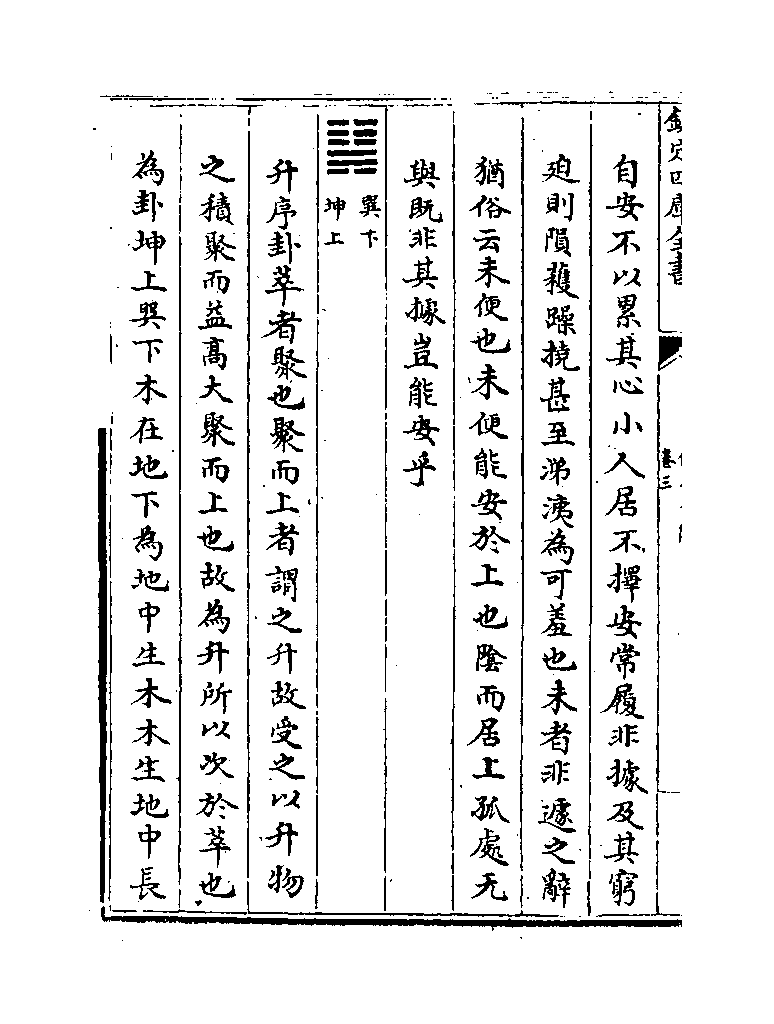 欽定四庫全書
卷三
自安不以累其心小人居不擇安常履非據及其窮
迫則隕穫躁撓甚至涕洟為可羞也未者非遽之辭
猶俗云未便也未便能安於上也陰而居上孤處无
與既非其據豈能安乎
巽下
坤上
升序卦萃者聚也聚而上者謂之升故受之以升物
之積聚而益髙大聚而上也故為升所以次於萃也
為卦坤上巽下木在地下為地中生木木生地中長